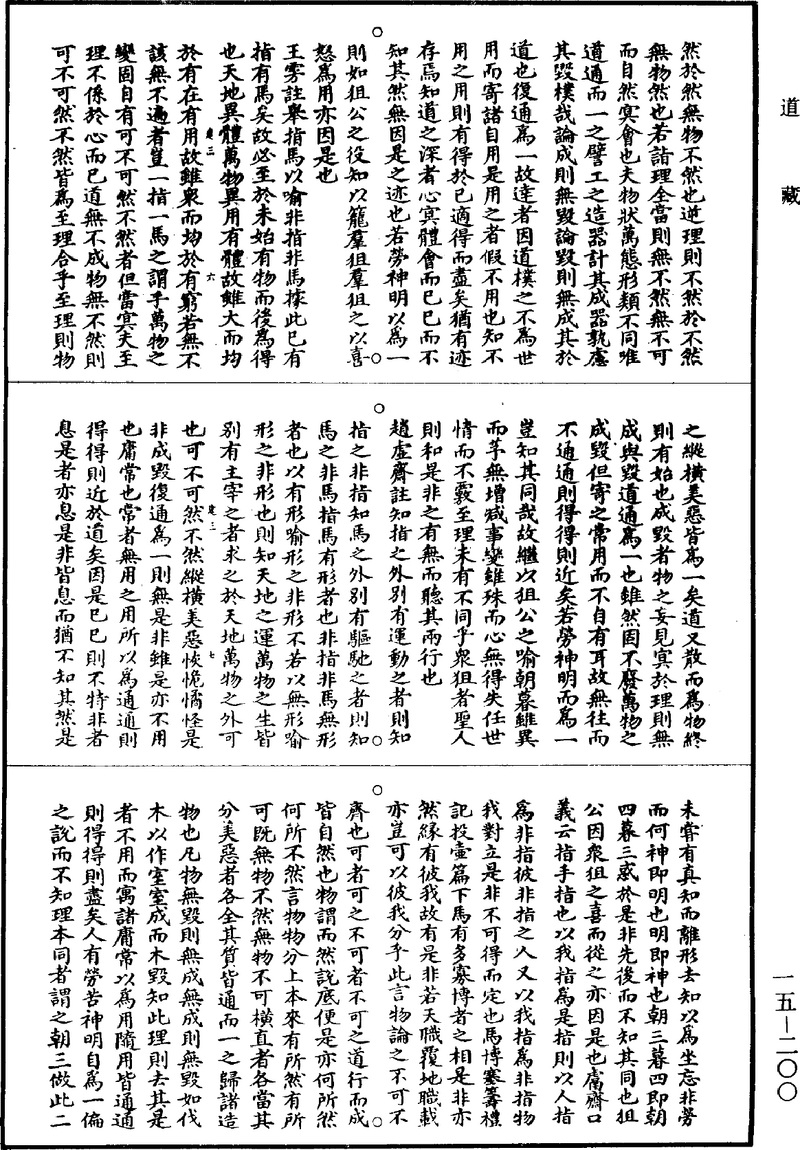 道藏
然於然無物不然也逆理則不然於不然
無物然也若詣理全當則無不然無不可
而自然冥會也夫物狀萬態形類不同唯
道通而一之譬工之造器計其成器孰慮
其毀樸哉論成則無毀論毀則無成其於
道也復通為一故達者因道樸之不為世
用而寄諸自用是用之者假不用也知不
用之用則有得於己適得而盡矣猶有迹
存焉知道之深者心冥體會而已已而不
知其然無因是之迹也若勞神明以為一
則如狙公之役知以籠羣狙羣狙之以喜
怒為用亦因是也
王雱註舉指馬以喻非指非馬據此已有
指有馬矣故必至於未始有物而後為得
也天地異體萬物異用有體故雖大而均
於有在有用故雖衆而均於有窮若無不
該無不遍者豈一指一馬之謂乎萬物之
變固自有可不可然不然者但當冥夫至
理不係於心而已道無不成物無不然則
可不可然不然皆為至理合乎至理則物
之縱橫美惡皆為一矣道又散而為物終
則有始也成毀者物之妄見冥於理則無
成與毀道通為一也雖然固不廢萬物之
成毀但寄之常用而不自有耳故無往而
不通通則得得則近矣若勞神明而為一
豈知其同哉故繼以狙公之喻朝暮雖異
而芧無增減事變雖殊而心無得失任世
情而不覈至理未有不同乎衆狙者聖人
則和是非之有無而聽其兩行也
趙虛齋註知指之外別有運動之者則知
指之非指知馬之外別有驅馳之者則知
馬之非馬指馬有形者也非指非馬無形
者也以有形喻形之非形不若以無形喻
形之非形也則知天地之運萬物之生皆
別有主宰之者求之於天地萬物之外可
也可不可然不然縱橫美惡恢恑憰怪是
非成毀復通為一則無是非雖是亦不用
也庸常也常者無用之用所以為通通則
得得則近於道矣因是已已則不特非者
息是者亦息是非皆息而猶不知其然是
未嘗有真知而離形去知以為坐忘非勞
而何神即明也明即神也朝三暮四即朝
四暮三惑於是非先後而不知其同也狙
公因衆狙之喜而從之亦因是也鬳齋口
義云指手指也以我指為是指則以人指
為非指彼非指之人又以我指為非指物
我對立是非不可得而定也馬博塞籌禮
記投壺篇下馬有多寡博者之相是非亦
然緣有彼我故有是非若天職覆地職載
亦豈可以彼我分乎此言物論之不可不
齊也可者可之不可者不可之道行而成
皆自然也物謂而然說底便是亦何所然
何所不然言物物分上本來有所然有所
可既無物不然無物不可橫直者各當其
分美惡者各全其質皆通而一之歸諸造
物也凡物無毀則無成無成則無毀如伐
木以作室室成而木毀知此理則去其是
者不用而寓諸庸常以為用隨用皆通通
則得得則盡矣人有勞苦神明自為一偏
之說而不知理本同者謂之朝三做此二
一五—二〇〇